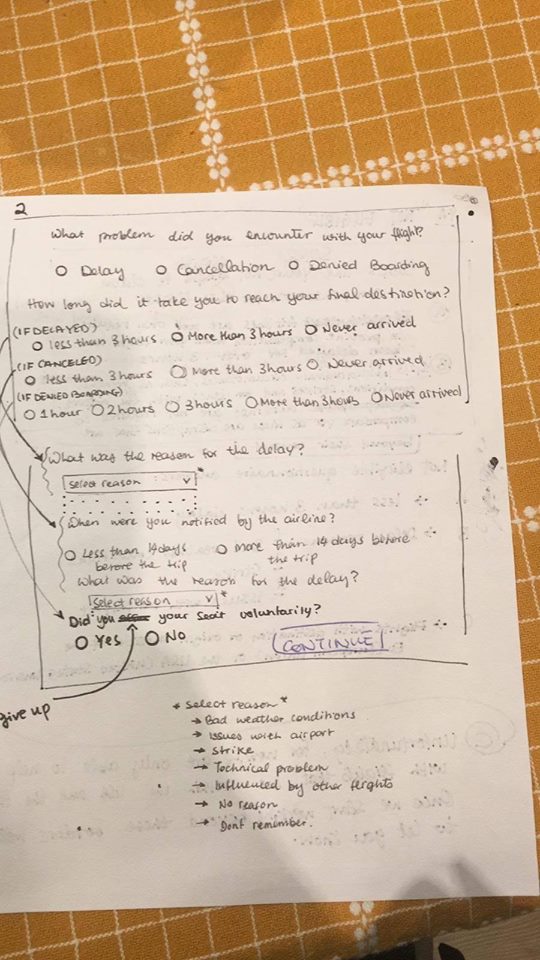 2
What problem did you encounter with your flight?
Delay Cancellation Denied Boarding
How long did it take you to reach your final destination?
(IF DELAYED)
less than 3 hours. More than 3 hours Never arrived
(IF CANCELED)
less than 3 hours More than 3 hours Never arrived
(IF DENIED BOARDING)
1 hour 2 hours 3 hours More than 3 hours Never arrived
What was the reason for the delay?
select reason v *
When were you notified by the airline?
Less than 14 days More than 14 days before
before the trip the trip
What was the reason for the delay?
Select reason v *
Did you your seat voluntarily?
Yes No
CONTINUE
give up
* select reason *
→ Bad weather conditions
→ issues with airport
→ strike
→ Technical problem
→ Influenced by other flights
→ No reason
→ Dont remember.